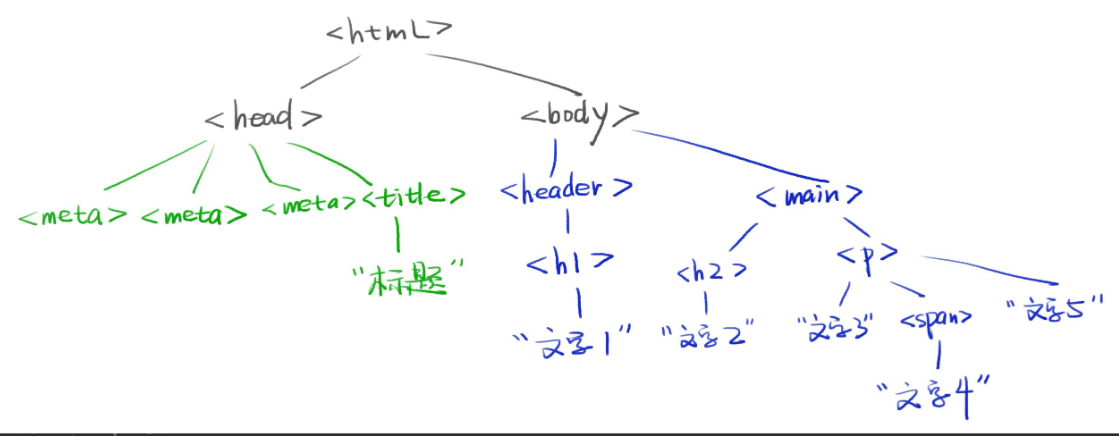 <html>
<head> <body>
<meta> <meta> <meta> <title> <header> <main>
"标题" <h1> <h2> <p>
"文字1" "文字2" "文字3" <span> "文字5"
"文字4"